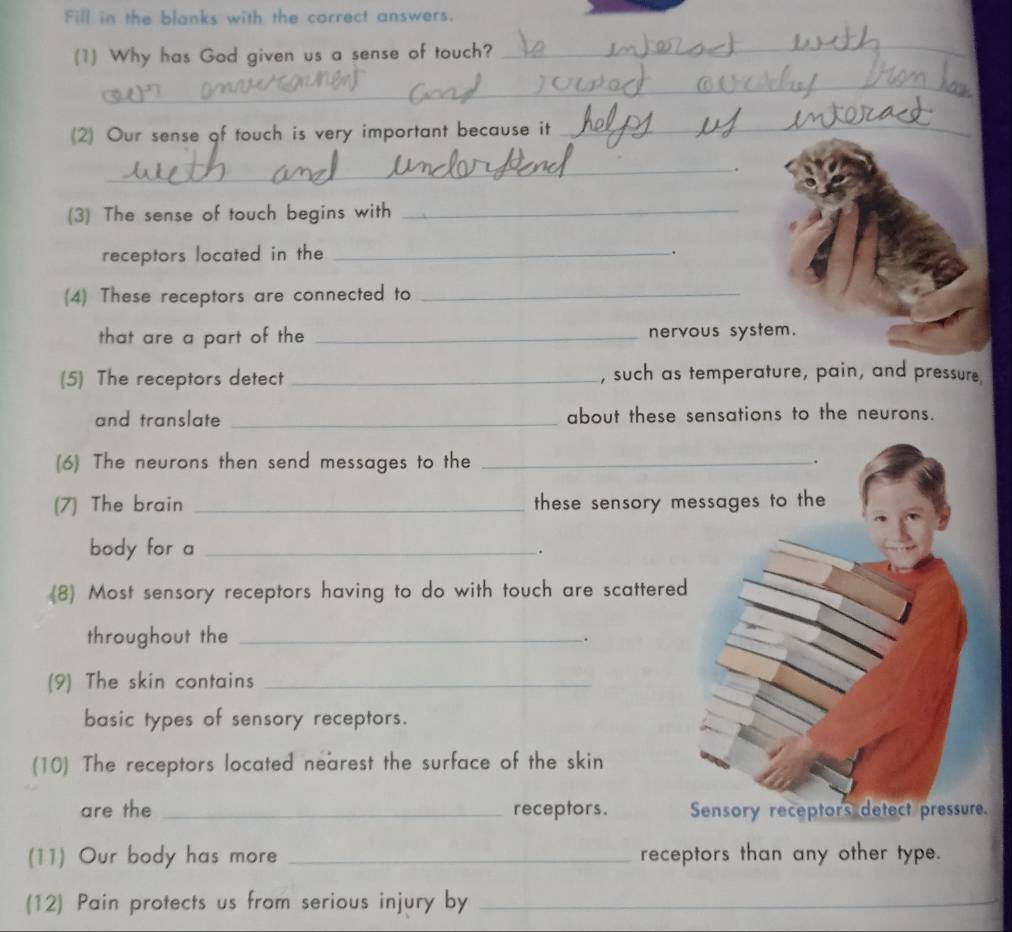 Fill in the blanks with the correct answers.
(1) Why has God given us a sense of touch? to interact with
our and
(2) Our sense of touch is very important because it helps us interact
with and understand.
(3) The sense of touch begins with
receptors located in the .
(4) These receptors are connected to
that are a part of the nervous system.
(5) The receptors detect , such as temperature, pain, and pressure,
and translate about these sensations to the neurons.
(6) The neurons then send messages to the .
(7) The brain these sensory messages to the
body for a .
(8) Most sensory receptors having to do with touch are scattered
throughout the .
(9) The skin contains
basic types of sensory receptors.
(10) The receptors located nearest the surface of the skin
are the receptors.
Sensory receptors detect pressure.
(11) Our body has more receptors than any other type.
(12) Pain protects us from serious injury by